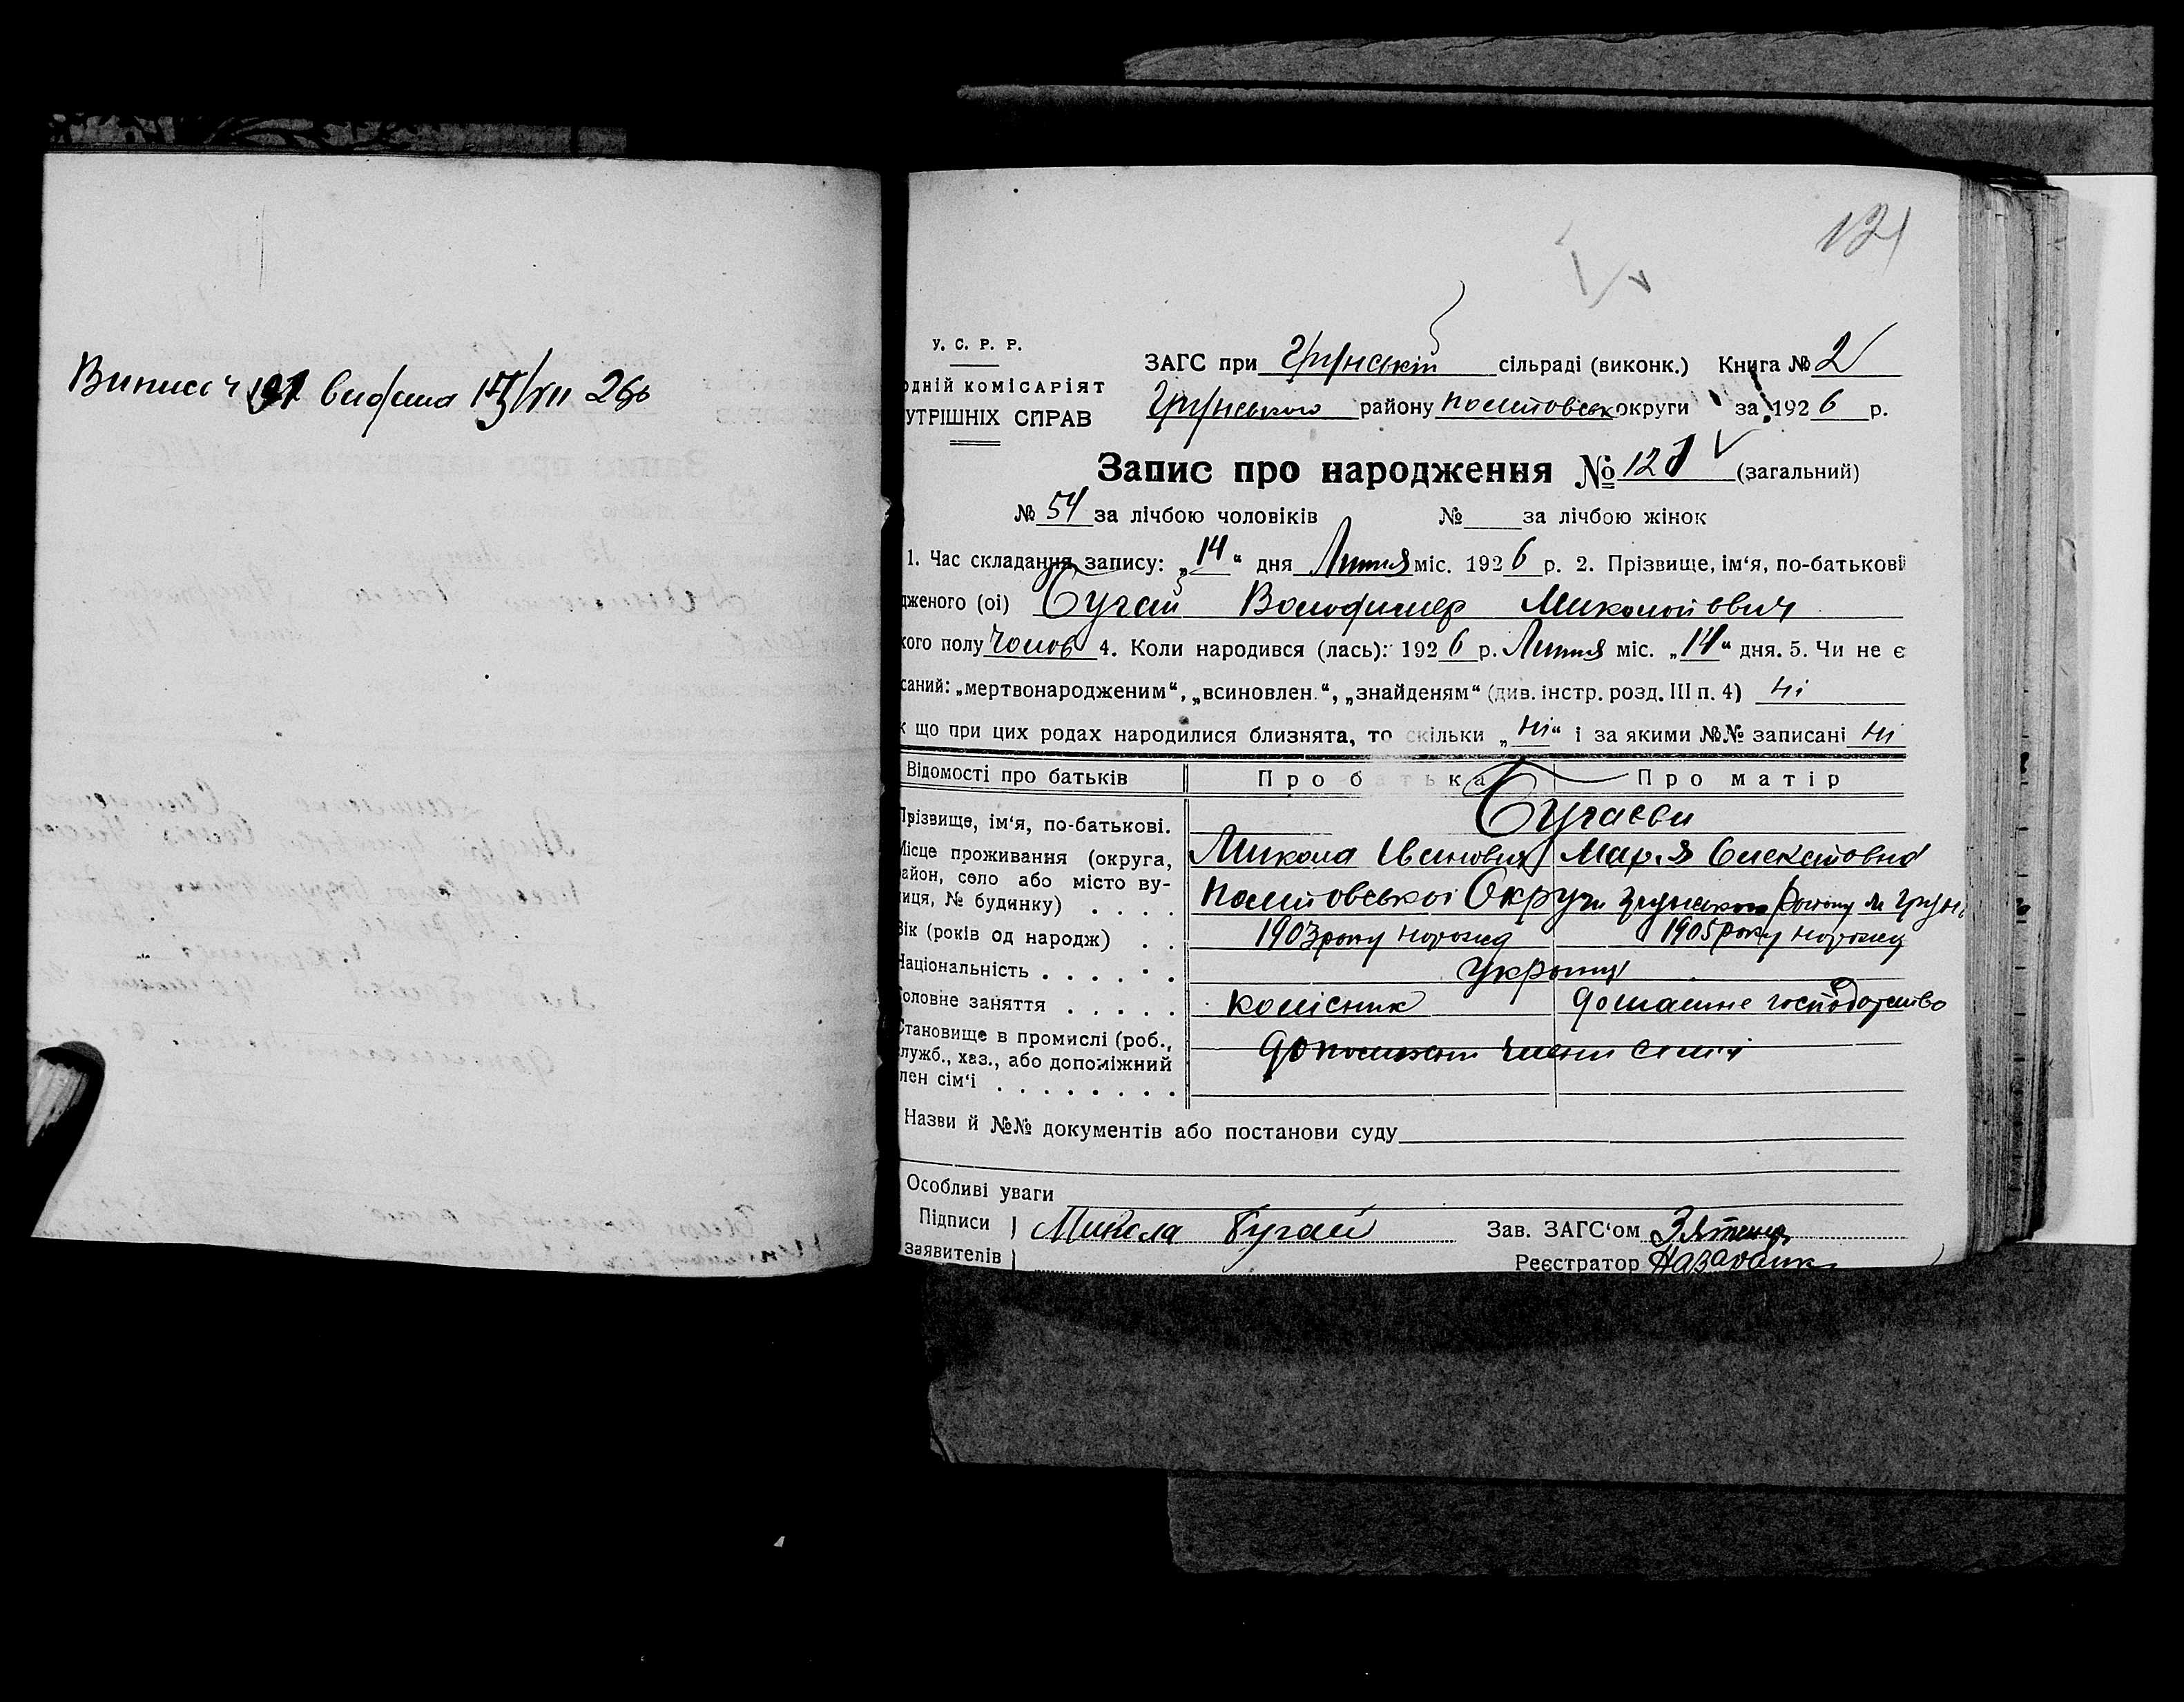 Випись ч 121 видана 15/VII 26р
121
У. С. Р. Р.
одній комісаріят
УТРІШНІХ СПРАВ
ЗАГС при Грунській сільраді (виконк.) Книга № 2
Грунського району Полтовськ округи за 1926 р.
Запис про народження № 121 (загальний)
№ 54 за лічбою чоловіків № за лічбою жінок
1. Час складання запису: „14“ дня Липня міс. 1926 р. 2. Прізвище, ім‘я, по-батькові
дженого (ої) Бугай Володимер Миколойович
кого полу Чолов 4. Коли народився (лась): 1926 р. Липня міс. „14“ дня. 5. Чи не є
саний: „мертвонародженим“, „всиновлен.“, „знайденям“ (див. інстр. розд. III п. 4) ні
к що при цих родах народилися близнята, то скільки „ні“ і за якими №№ записані ні
Відомості про батьків Про батька Про матір
Прізвище, ім‘я, по-батькові. Бугаєви
Микола Іванович Марія
Місце проживання (округа,
район, село або місто ву-
лиця, № будинку) . . . . Полтовської Округи Грунського району м Грунь
Вік (років од народж) . . 1903 року норожд 1905 року норожд
Національність . . . . . . Українці
Головне заняття . . . . . колісник домашнє господарство
Становище в промислі (роб.,
служб., хаз., або допоміжний
лен сім‘ї . . . . . . . . допоможні члени сем'ї
Назви й №№ документів або постанови суду
Особливі уваги
Підписи
заявителів Микола Бугай
Зав. ЗАГС‘ом
Реєстратор